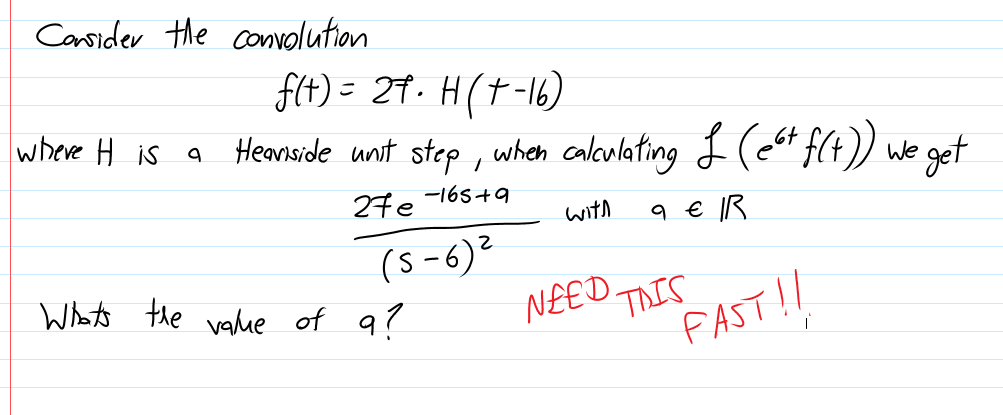 Consider the convolution
f(t) = 27 · H(t-16)
where H is a Heaviside unit step, when calculating ℒ(e^{6t} f(t)) we get
27e^{-16s+a} / (s-6)^2 with a ∈ ℝ
Whats the value of a?
NEED THIS FAST!!